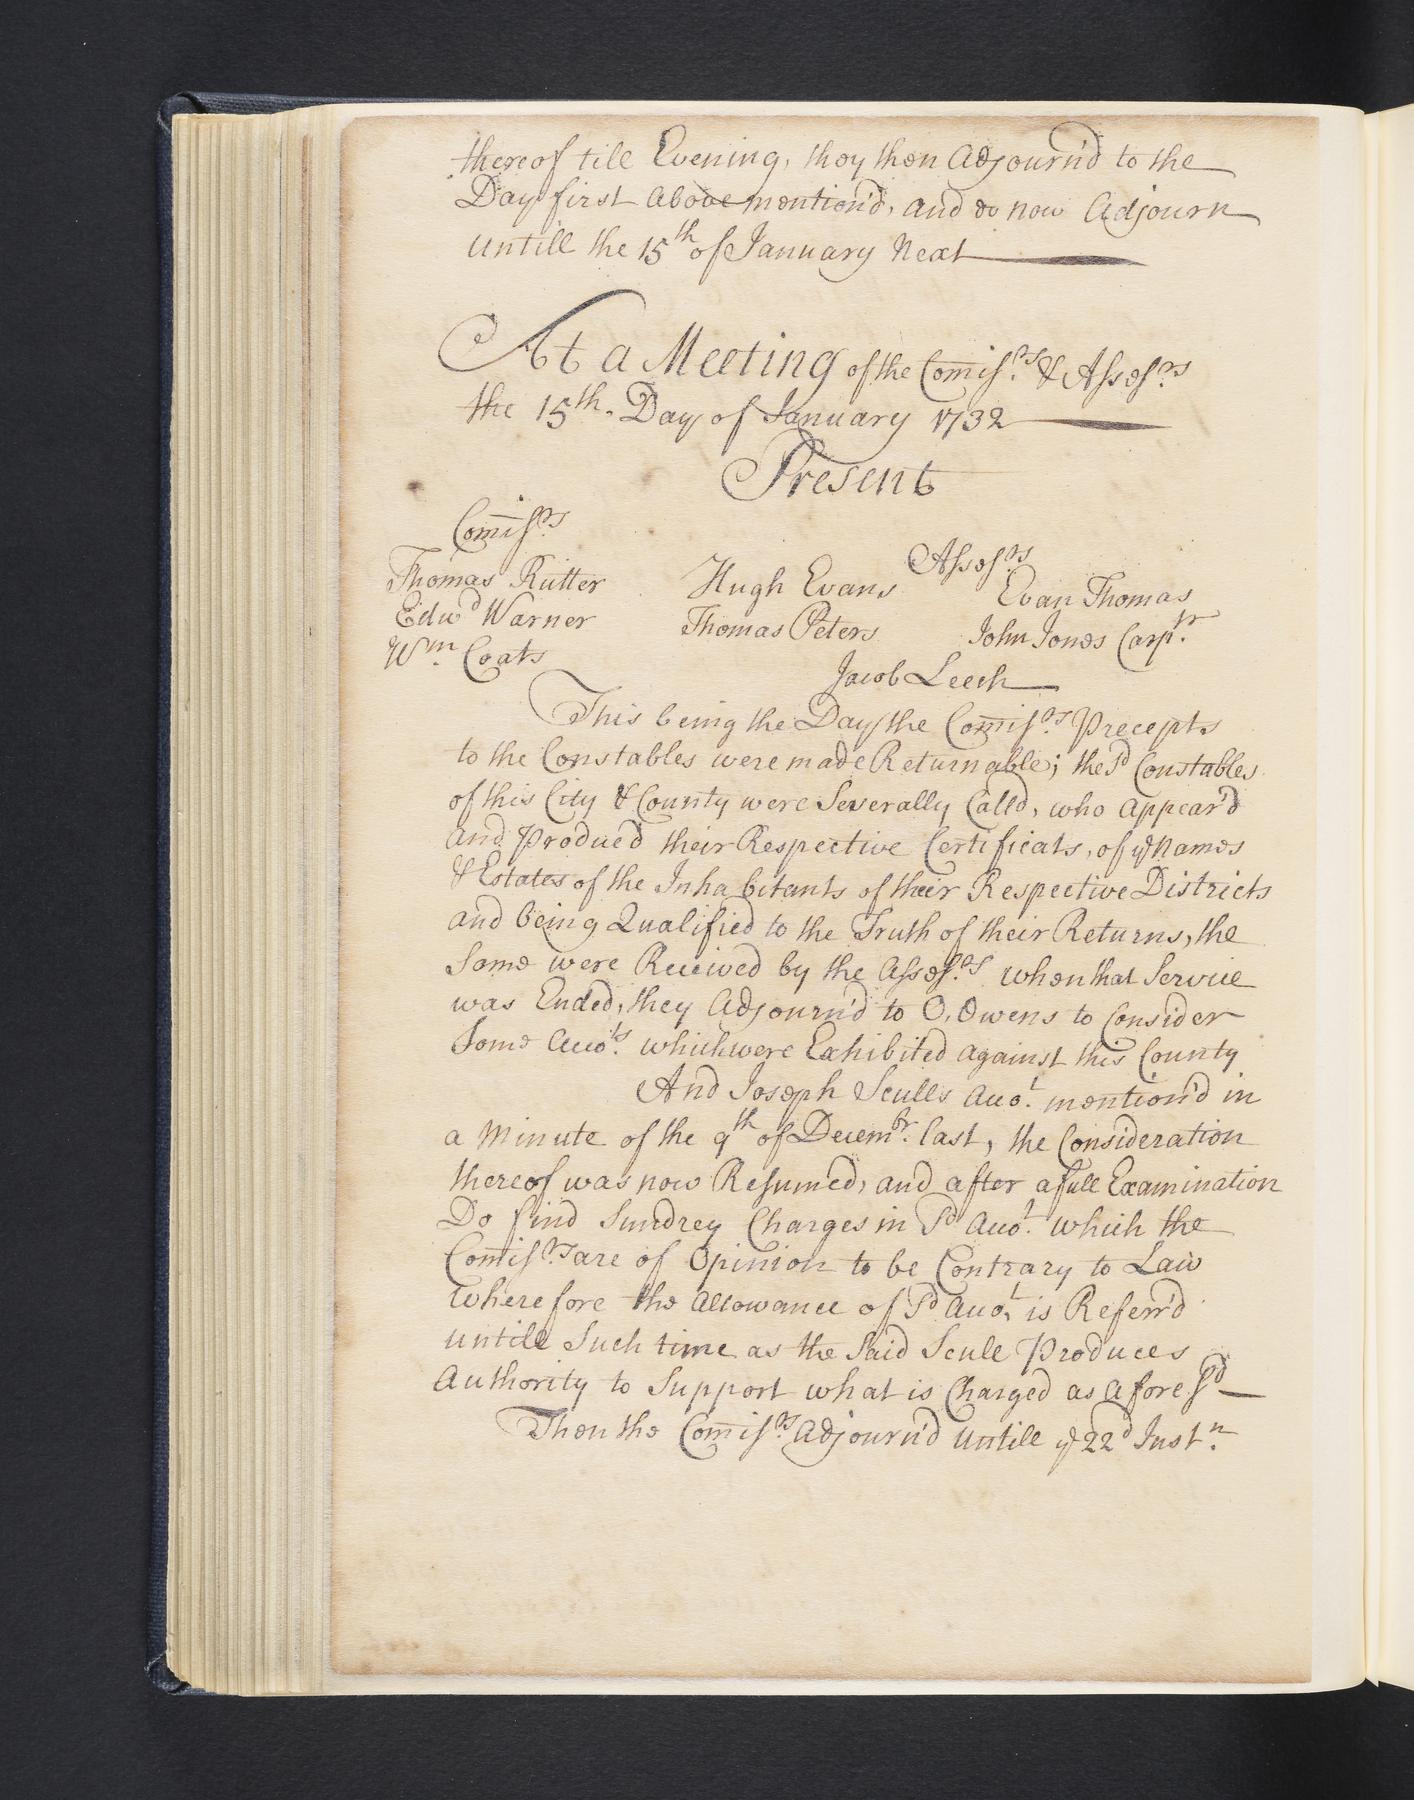 thereof till Evening, they then Adjourn'd to the
Day first above mention'd, and do now Adjourn
untill the 15th of January Next
At a Meeting of the Comiss.rs & Assess.rs
the 15th. Day of January 1732
Present
Comiss.rs
Assess.rs
Thomas Rutter
Hugh Evans
Evan Thomas
Edwd Warner
Thomas Peters
John Jones Carp.tr
Wm. Coats
Jacob Leech
This being the Day the Comiss.rs Precepts
to the Constables were made Returnable; the sd Constables
of this City & County were Severally Calld, who appear'd
and Produced their Respective Certificats, of ye Names
& Estates of the Inhabitants of their Respective Districts
and being Qualified to the Truth of their Returns, the
Same were Received by the Assess.rs when that Service
was Ended, they Adjourn'd to O. Owens to Consider
Some Acco.ts which were Exhibited against this County
And Joseph Sculls Acco.t mention'd in
a Minute of the 9th of Decem.br last, the Consideration
thereof was now Resumed, and after a full Examination
Do find Sundrey Charges in sd Acco.t which the
Comiss.rs are of Opinion to be Contrary to Law
wherefore the Allowance of sd Acco.t is Referr'd
untill Such time as the Said Scull Produces
Authority to Support what is Charged as afores.d
Then the Comiss.rs Adjourn'd untill ye 22d Inst.n